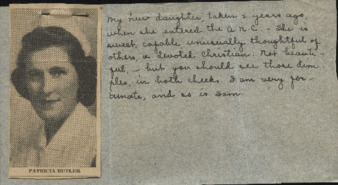 My new daughter, taken 2 years ago,
when she entered the A.N.C. - She is
sweet, capable unusually thoughtful of
others, a devoted Christian. Not beauti-
ful, - but you should see those dim-
ples, in both cheeks. I am very for-
tunate, and so is Sam.
PATRICIA BUTLER